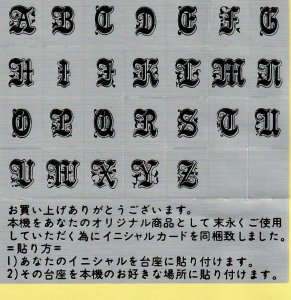 A B C D E F G
H I J K L M N
O P Q R S T U
V W X Y Z
お買い上げありがとうございます。
本機をあなたのオリジナル商品として末永くご使用
していただく為にイニシャルカードを同梱致しました。
=貼り方=
1)あなたのイニシャルを台座に貼り付けます。
2)その台座を本機のお好きな場所に貼り付けます。